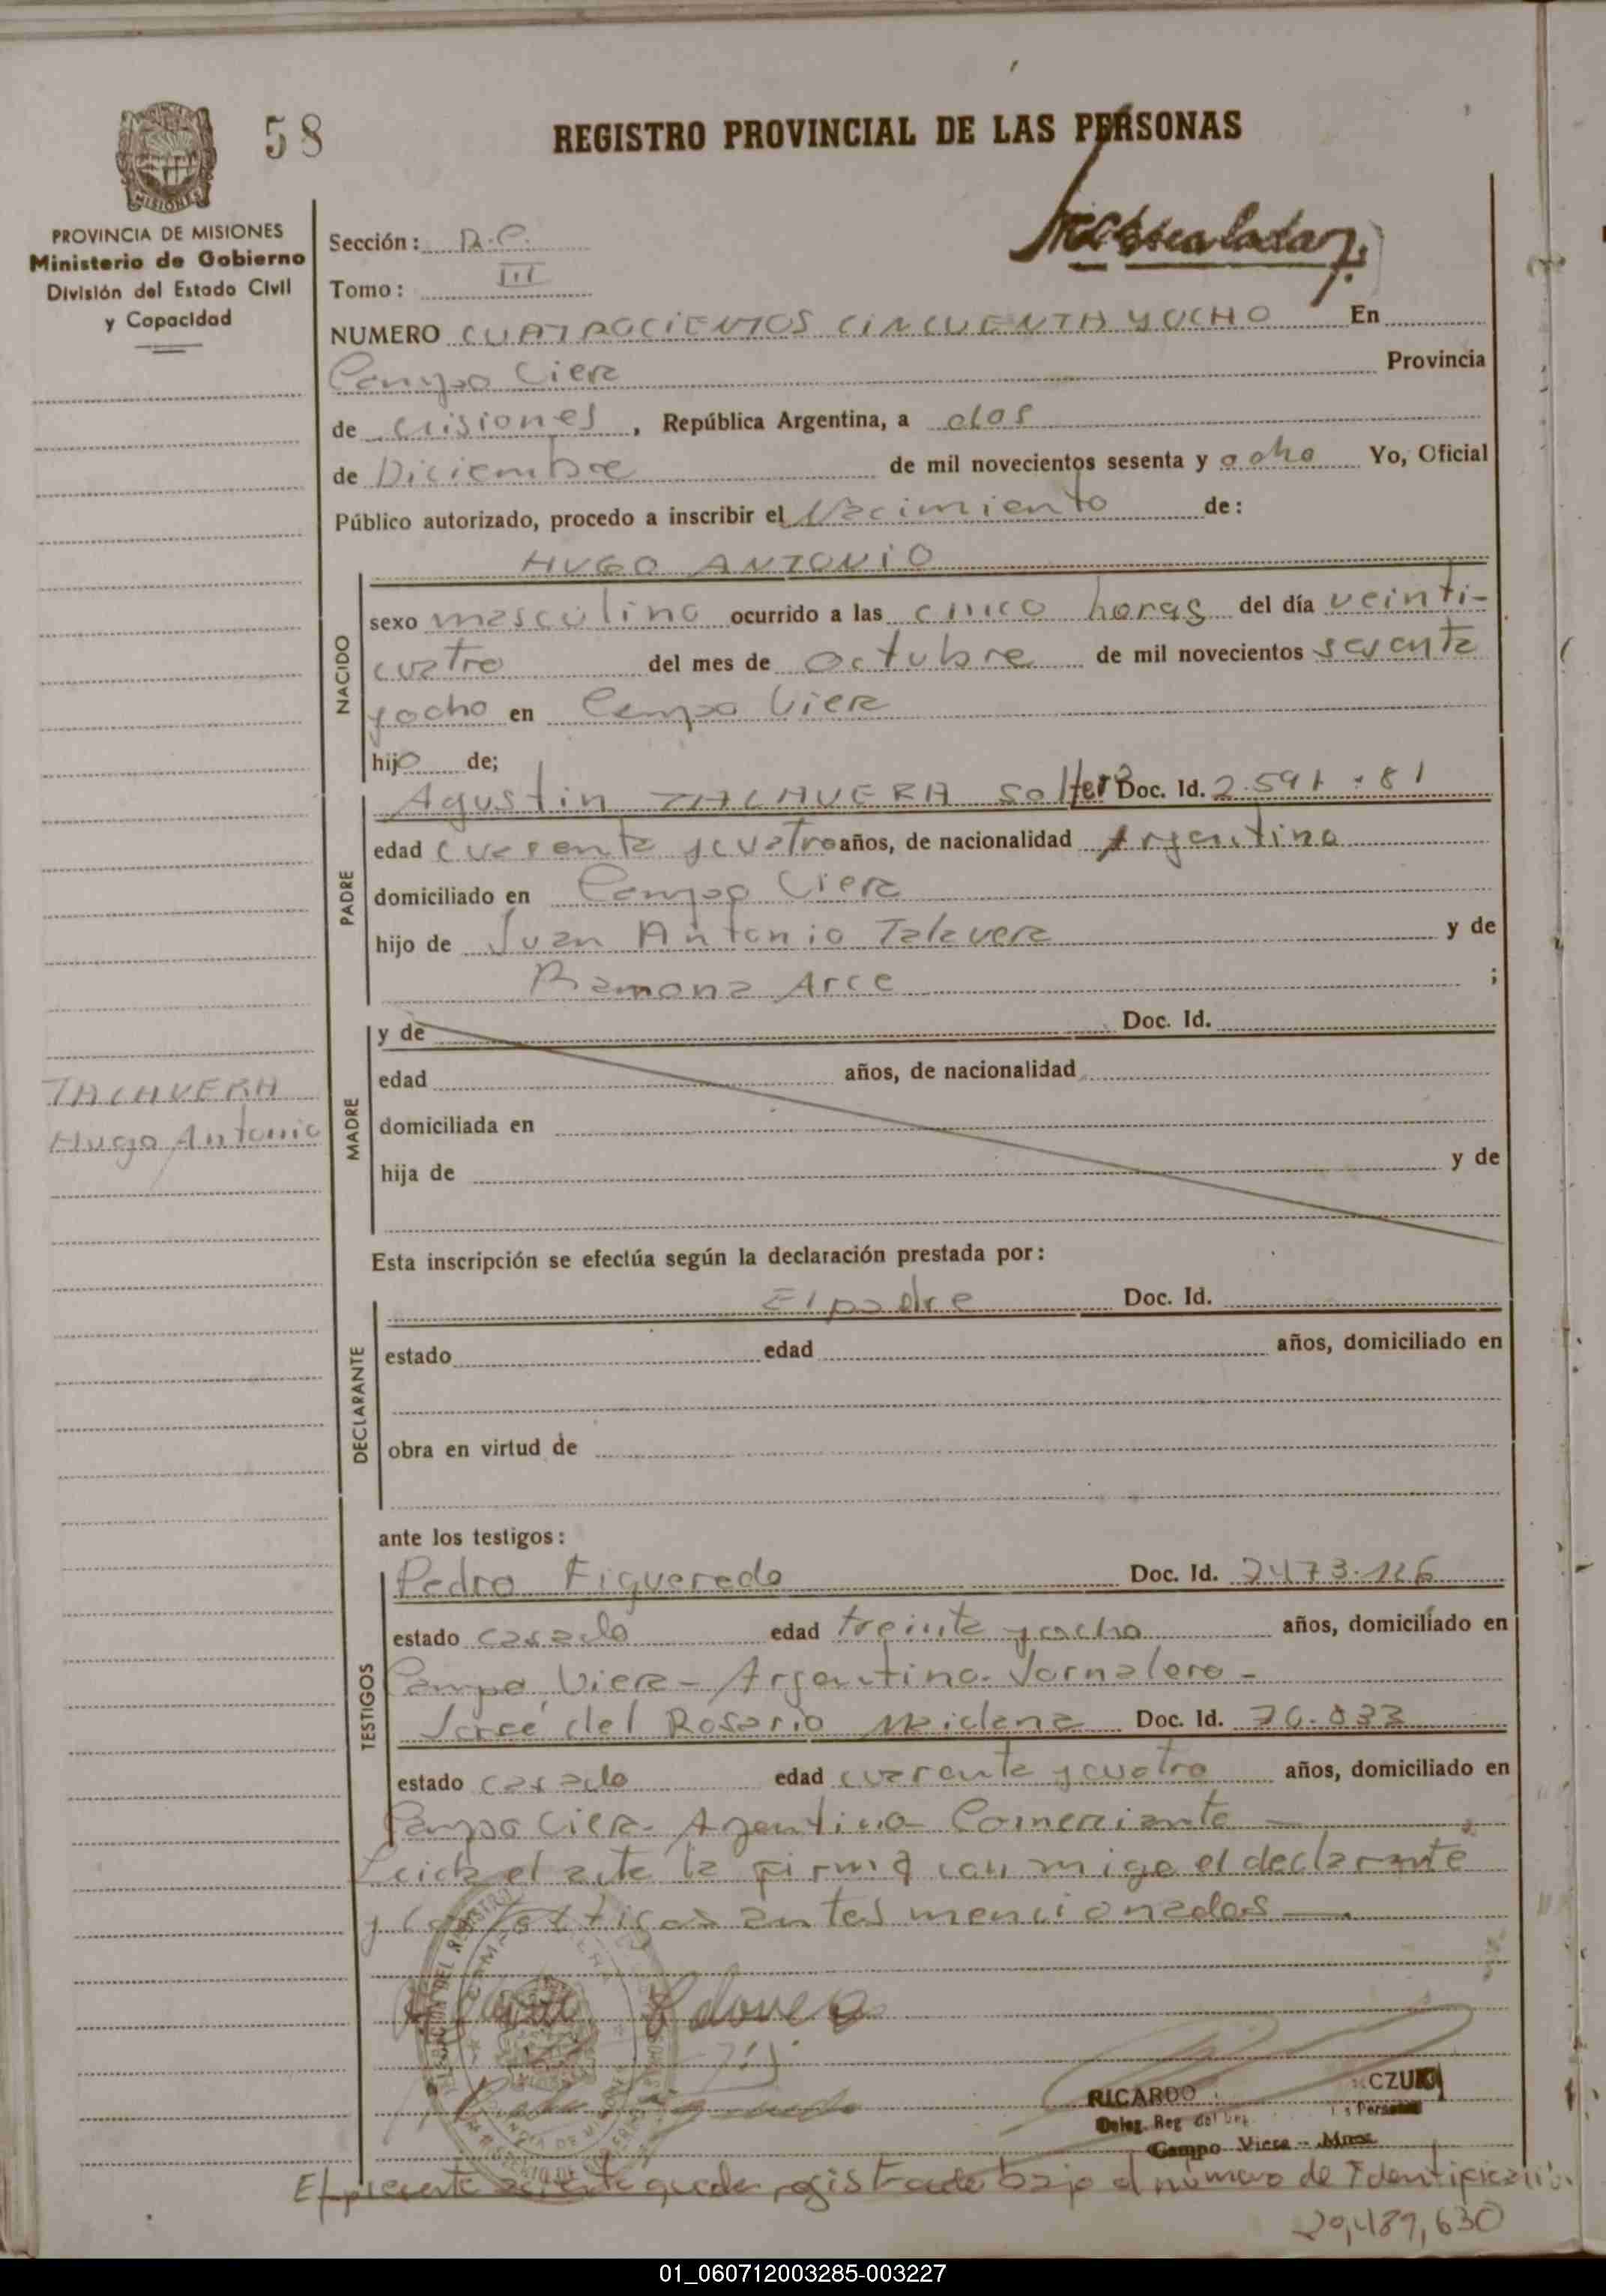 58
REGISTRO PROVINCIAL DE LAS PERSONAS
MISIONES
PROVINCIA DE MISIONES
Ministerio de Gobierno
División del Estado Civil
y Capacidad
Sección:
Tomo: III
NUMERO CUATROCIENTOS CINCUENTA Y OCHO En
Campo Viera Provincia
de Misiones, República Argentina, a dos
de Diciembre de mil novecientos sesenta y ocho Yo, Oficial
Público autorizado, procedo a inscribir el Nacimiento de:
HUGO ANTONIO
NACIDO
sexo masculino ocurrido a las cinco horas del día veinti-
cuatro del mes de octubre de mil novecientos sesenta
y ocho en Campo Viera
hijo de;
Agustin TALAVERA soltero Doc. Id. 2.591.81
PADRE
edad cuarenta y cuatro años, de nacionalidad Argentina
domiciliado en Campo Viera
hijo de Juan Antonio Talavera y de
Ramona Arce ;
y de Doc. Id.
MADRE
edad años, de nacionalidad
domiciliada en
hija de y de
TALAVERA
Hugo Antonio
Esta inscripción se efectúa según la declaración prestada por:
El padre Doc. Id.
DECLARANTE
estado edad años, domiciliado en
obra en virtud de
ante los testigos:
TESTIGOS
Pedro Figueredo Doc. Id. 2473.126
estado casado edad treinta y ocho años, domiciliado en
Campo Viera - Argentino - Jornalero -
José del Rosario Maidana Doc. Id. 70.833
estado casado edad cuarenta y cuatro años, domiciliado en
Campo Viera - Argentino - Comerciante -
Leida el acta la firma con migo el declarante
y los testigos antes mencionados
RICARDO CZUK
Deleg. Reg. de las Personas
Campo Viera - Mnes.
El presente queda registrado bajo el número de Identificación
20,489,630
01_060712003285-003227